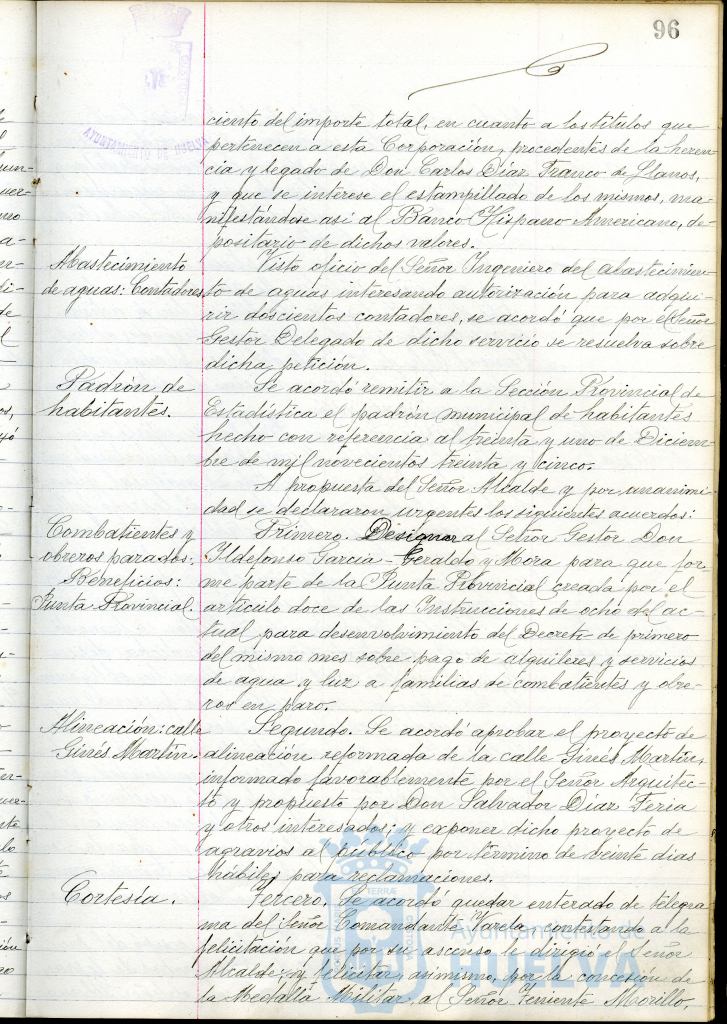 96
AYUNTAMIENTO DE HUELVA
ciento del importe total, en cuanto a los títulos que
pertenecen a esta Corporación, procedentes de la heren-
cia y legado de Don Carlos Díaz Franco de Llanos,
y que se interese el estampillado de los mismos, ma-
nifestándose así al Banco Hispano Americano, de-
positario de dichos valores.
Abastecimiento
de aguas: Contadores
Visto oficio del Señor Ingeniero del abastecimien-
to de aguas interesando autorización para adqui-
rir doscientos contadores, se acordó que por el Señor
Gestor Delegado de dicho servicio se resuelva sobre
dicha petición.
Padrón de
habitantes.
Se acordó remitir a la Sección Provincial de
Estadística el padrón municipal de habitantes
hecho con referencia al treinta y uno de Diciem-
bre de mil novecientos treinta y cinco.
A propuesta del Señor Alcalde y por unanimi-
dad se declararon urgentes los siguientes acuerdos:
Combatientes y
obreros parados:
Beneficios:
Junta Provincial.
Primero. Designar al Señor Gestor Don
Ildefonso García-Geraldo y Mora para que for-
me parte de la Junta Provincial creada por el
artículo doce de las Instrucciones de ocho del ac-
tual para desenvolvimiento del Decreto de primero
del mismo mes sobre pago de alquileres y servicios
de agua y luz a familias de combatientes y obre-
ros en paro.
Alineación: calle
Ginés Martín.
Segundo. Se acordó aprobar el proyecto de
alineación reformada de la calle Ginés Martín,
informado favorablemente por el Señor Arquitec-
to y propuesto por Don Salvador Díaz Feria
y otros interesados; y exponer dicho proyecto de
agravios al público por término de veinte días
hábiles para reclamaciones.
Cortesía.
Tercero. Se acordó quedar enterado de telegra-
ma del Señor Comandante Varela contestando a la
felicitación que por su ascenso le dirigió el Señor
Alcalde; y felicitar, asimismo, por la concesión de
la Medalla Militar, al Señor Teniente Morillo,
Ayuntamiento de
HUELVA